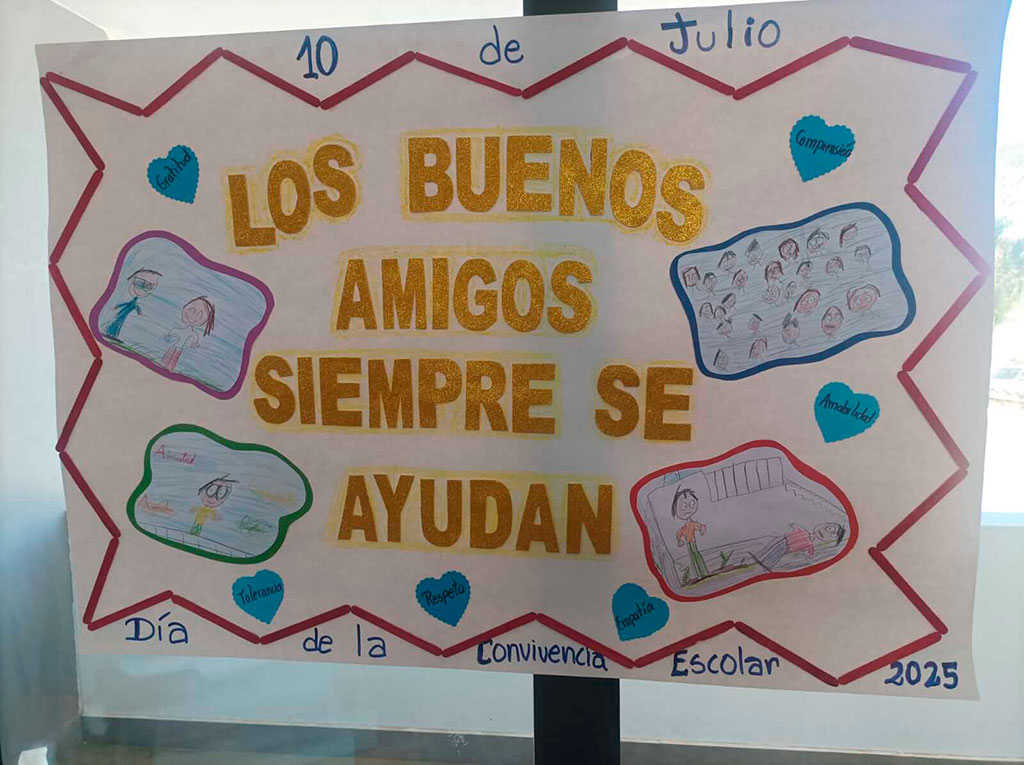 10 de Julio
Gratitud
Comprensión
LOS BUENOS
AMIGOS
SIEMPRE SE
AYUDAN
Amabilidad
Amistad
Tolerancia
Respeto
Empatía
Día de la Convivencia Escolar 2025